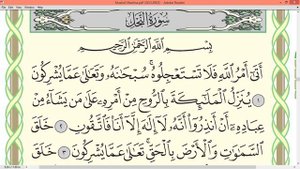 سُورَةُ النَّحْلِ
بِسْمِ اللَّهِ الرَّحْمَٰنِ الرَّحِيمِ
أَتَىٰٓ أَمْرُ اللَّهِ فَلَا تَسْتَعْجِلُوهُ ۚ سُبْحَٰنَهُۥ وَتَعَٰلَىٰ عَمَّا يُشْرِكُونَ
١ يُنَزِّلُ الْمَلَٰٓئِكَةَ بِالرُّوحِ مِنْ أَمْرِهِۦ عَلَىٰ مَن يَشَآءُ مِنْ
عِبَادِهِۦٓ أَنْ أَنذِرُوٓا۟ أَنَّهُۥ لَآ إِلَٰهَ إِلَّآ أَنَا۠ فَاتَّقُونِ ٢ خَلَقَ
السَّمَٰوَٰتِ وَالْأَرْضَ بِالْحَقِّ ۚ تَعَٰلَىٰ عَمَّا يُشْرِكُونَ ٣ خَلَقَ